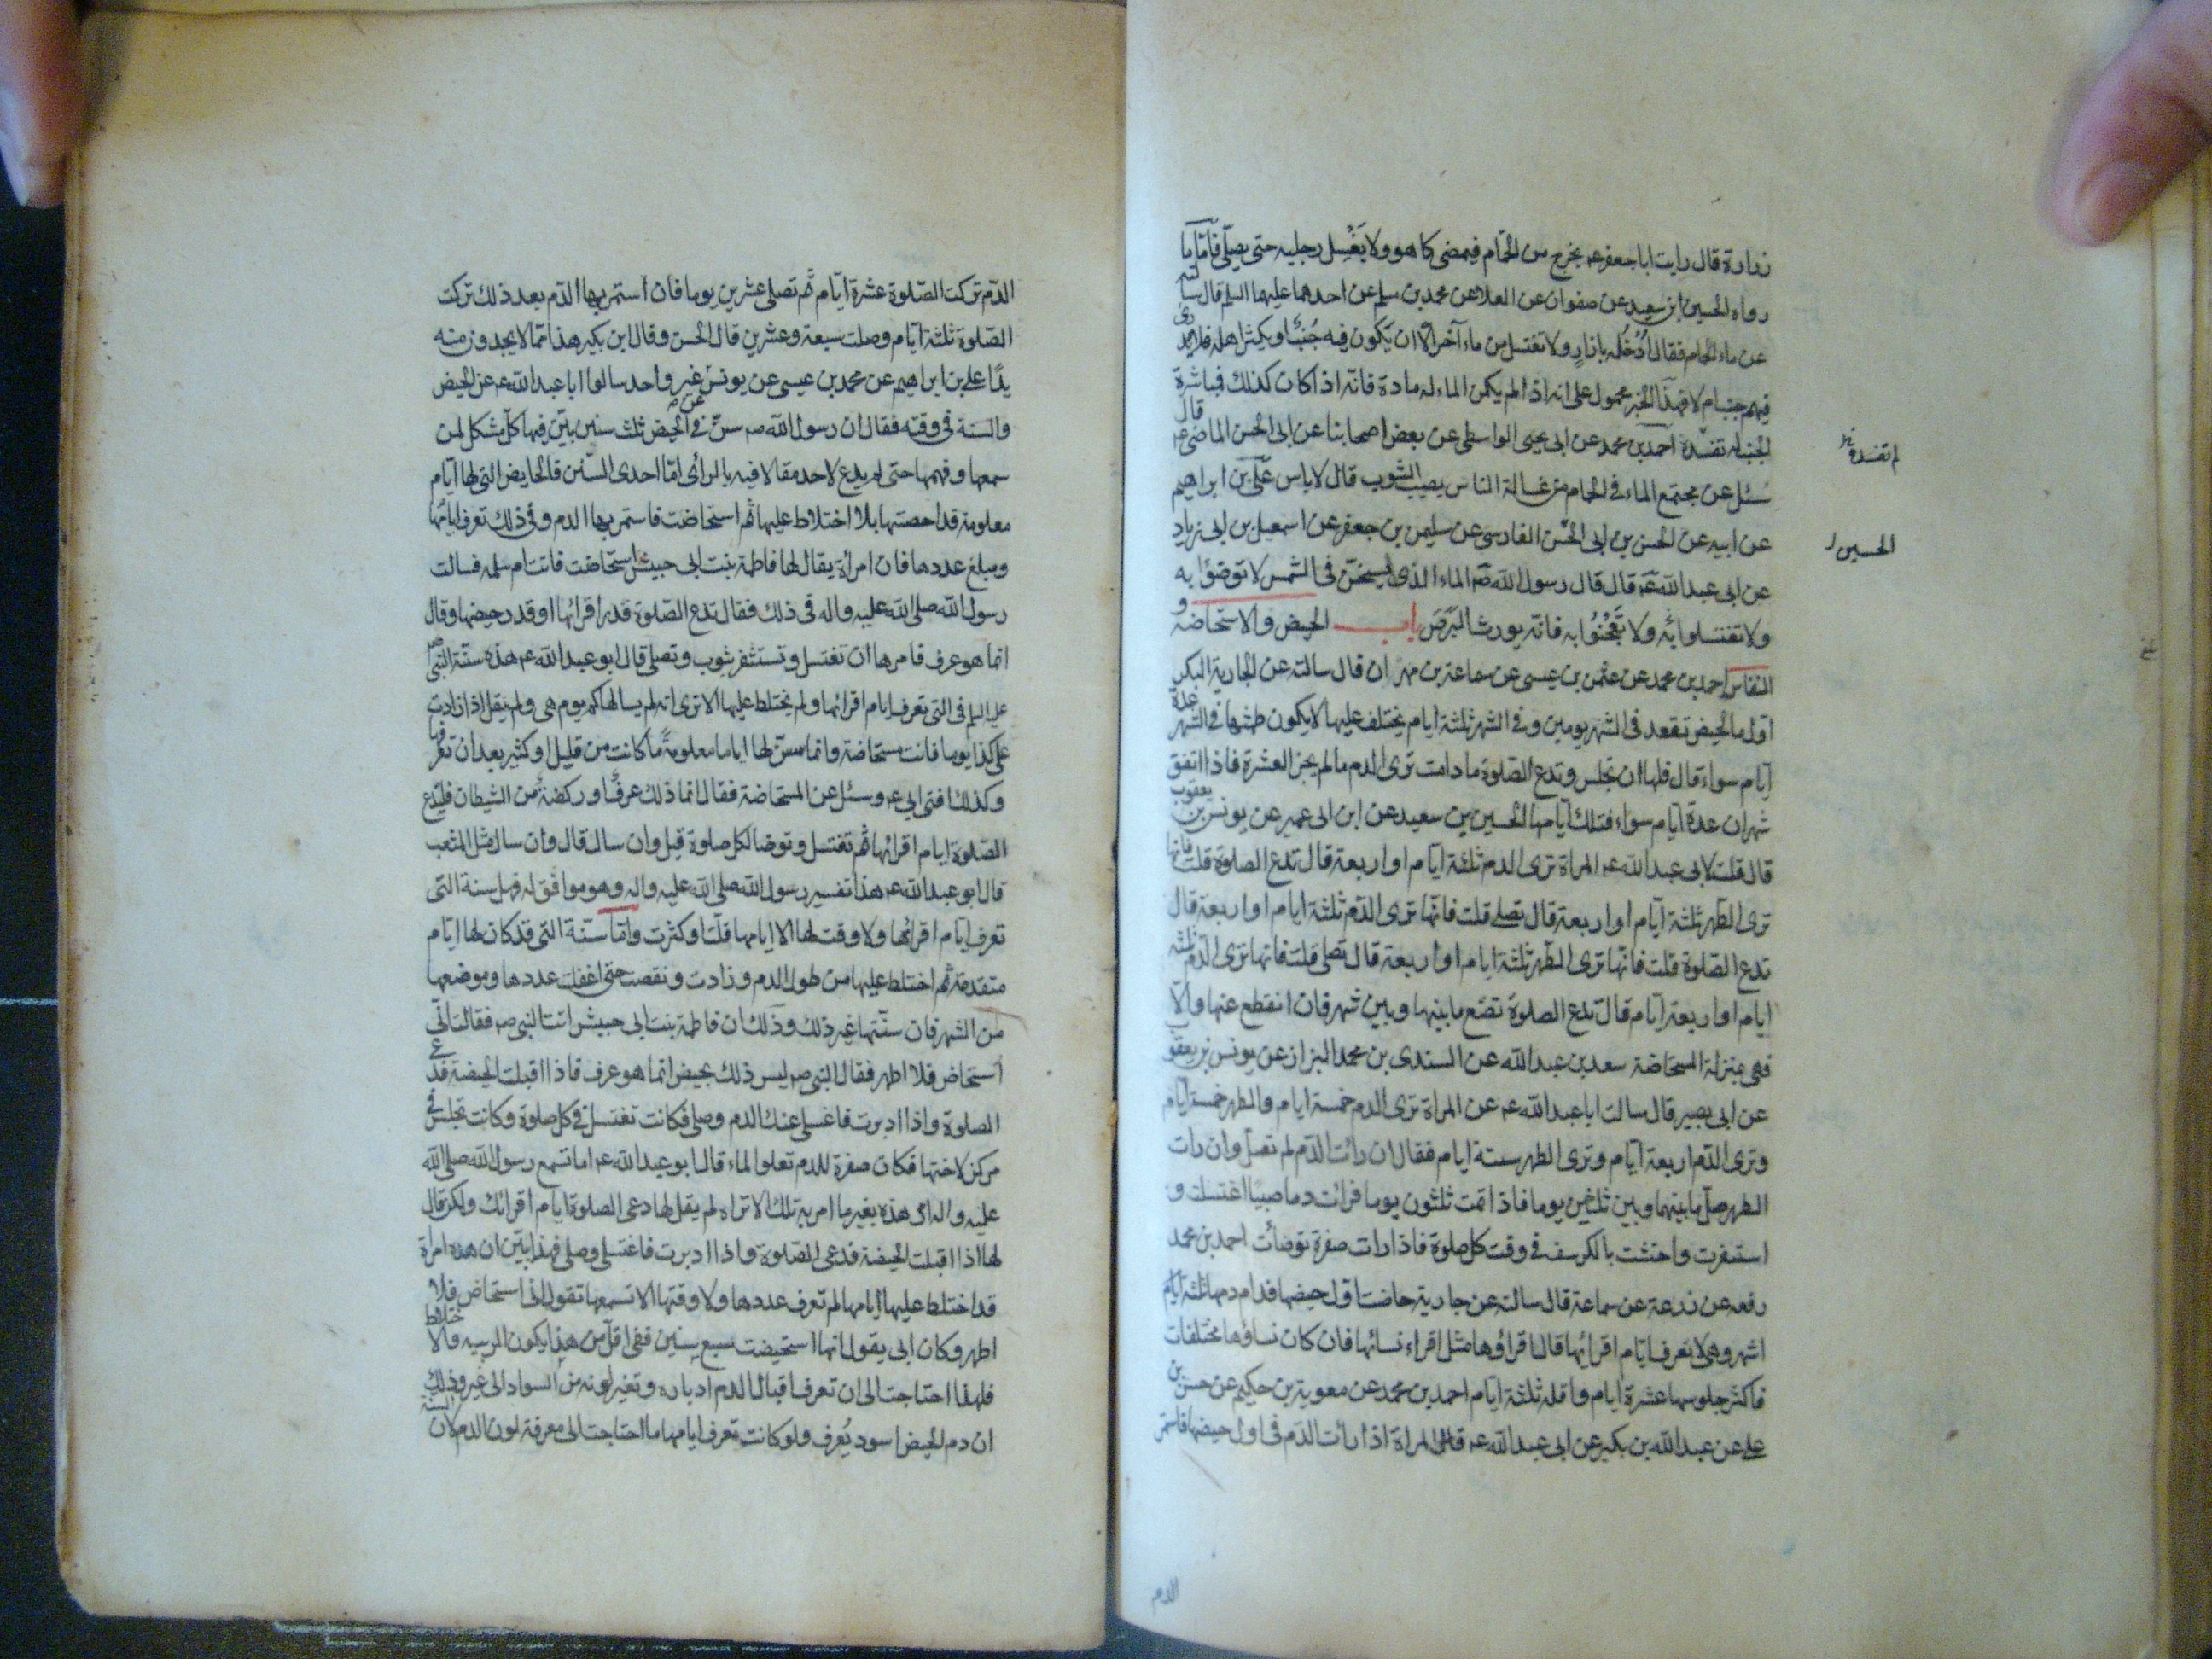 زرارة قال رايت ابا جعفر عم يخرج من الحمام فيمضى كما هو ولا يغسل رجليه حتى يصلى فاما ما
رواه الحسين ابن سعيد عن صفوان عن العلا عن محمد بن مسلم عن احدهما عليهما السلم قال سالته
عن ماء الحمام فقال ادخله بازار ولا تغتسل من ماء آخر الا ان يكون فيه جنب او يكثر اهله فلا يدرى
فيهم جنب ام لا فهذا الخبر محمول على انه اذا لم يكن الماء له مادة فانه اذا كان كذلك فمباشرة
الجنب له تفسده احمد بن محمد عن ابى يحيى الواسطى عن بعض اصحابنا عن ابى الحسن الماضى عم قال
سئل عن مجتمع الماء فى الحمام من غسالة الناس يصيب الثوب قال لا باس على بن ابراهيم
عن ابيه عن الحسن بن ابى الحسن الفارسى عن سليمن بن جعفر عن اسمعيل بن ابى زياد
عن ابى عبد الله عم قال قال رسول الله ص الماء الذى يسخن فى الشمس لا توضؤا به
ولا تغتسلوا به ولا تعجنوا به فانه يورث البرص باب الحيض والاستحاضة و
النفاس احمد بن محمد عن عثمن بن عيسى عن سماعة بن مهران قال سالته عن الجارية البكر
اول ما تحيض تقعد فى الشهر يومين وفى الشهر ثلثة ايام يختلف عليها لا يكون طمثها فى الشهر عدة
ايام سواء قال فلها ان تجلس وتدع الصلوة ما دامت ترى الدم ما لم يجز العشرة فاذا اتفق
شهران عدة ايام سواء فتلك ايامها الحسين بن سعيد عن ابن ابى عمير عن يونس بن يعقوب
قال قلت لابى عبد الله عم المراة ترى الدم ثلثة ايام او اربعة قال تدع الصلوة قلت فانها
ترى الطهر ثلثة ايام او اربعة قال تصلى قلت فانها ترى الدم ثلثة ايام او اربعة قال
تدع الصلوة قلت فانها ترى الطهر ثلثة ايام او اربعة قال تصلى قلت فانها ترى الدم ثلثة
ايام او اربعة ايام قال تدع الصلوة تصنع ما بينها وبين شهر فان انقطع عنها والا
فهى بمنزلة المستحاضة سعد بن عبد الله عن السندى بن محمد البزاز عن يونس بن يعقوب
عن ابى بصير قال سالت ابا عبد الله عم عن المراة ترى الدم خمسة ايام والطهر خمسة ايام
وترى الدم اربعة ايام وترى الطهر ستة ايام فقال ان رات الدم لم تصل وان رات
الطهر صلت ما بينهما وبين ثلثين يوما فاذا تمت ثلثون يوما فرات دما صبيبا اغتسلت و
استثفرت واحتشت بالكرسف فى وقت كل صلوة فاذا رات صفرة توضأت احمد بن محمد
رفعه عن زرعة عن سماعة قال سالته عن جارية حاضت اول حيضها فدام دمها ثلثة
اشهر وهى لا تعرف ايام اقرائها قال اقراؤها مثل اقراء نسائها فان كان نساؤها مختلفات
فاكثر جلوسها عشرة ايام واقله ثلثة ايام احمد بن محمد عن معوية بن حكيم عن حسن بن
على عن عبد الله بن بكير عن ابى عبد الله عم قال المراة اذا رات الدم فى اول حيضها فاستمر
الدم
الحسين
الدم تركت الصلوة عشرة ايام ثم تصلى عشرين يوما فان استمر بها الدم بعد ذلك تركت
الصلوة ثلثة ايام وصلت سبعة وعشرين قال الحسن وقال ابن بكير هذا مما لا يجدون منه
بدا على بن ابراهيم عن محمد بن عيسى عن يونس عن غير واحد سالوا ابا عبد الله عم عن الحيض
والسنة فى وقته فقال ان رسول الله ص سن فى الحيض ثلث سنين بين فيها كل مشكل لمن
سمعها وفهمها حتى لم يدع لاحد مقالا فيه بالراى اما احدى السنن فالحايض التى لها ايام
معلومة قد احصتها بلا اختلاط عليها ثم استحاضت فاستمر بها الدم وفى ذلك تعرف ايامها
ومبلغ عددها فان امراة يقال لها فاطمة بنت ابى حبيش استحاضت فاتت ام سلمه فسالت
رسول الله صلى الله عليه واله فى ذلك فقال تدع الصلوة قدر اقرائها او قدر حيضها وقال
انما هو عرف فامرها ان تغتسل وتستثفر بثوب وتصلى قال ابو عبد الله عم هذه سنة النبى ص
فى التى تعرف ايام اقرائها ولم يختلط عليها الا ترى انه لم يسالها كم يوم هى ولم يقل اذا زادت
على كذا يوما فانت مستحاضة وانما سن لها اياما معلومة ما كانت من قليل او كثير بعد ان تعرفها
وكذلك افتى ابى عم وسئل عن المستحاضة فقال انما ذلك عرف او ركضة من الشيطان فلتدع
الصلوة ايام اقرائها ثم تغتسل وتوضا لكل صلوة قيل وان سال قال وان سال مثل المثعب
قال ابو عبد الله عم هذا تفسير رسول الله صلى الله عليه واله وهو موافق له فهل سنة التى
تعرف ايام اقرائها ولا وقت لها الا ايامها قلت او كثرت واما سنة التى قد كان لها ايام
متقدمة ثم اختلط عليها من طول الدم وزادت ونقصت حتى اغفلت عددها وموضعها
من الشهر فان سنتها غير ذلك وذلك ان فاطمة بنت ابى حبيش اتت النبى ص فقالت انى
استحاض فلا اطهر فقال النبى ص ليس ذلك بحيض انما هو عرف فاذا اقبلت الحيضة فدعى
الصلوة واذا ادبرت فاغسلى عنك الدم وصلى فكانت تغتسل فى كل صلوة وكانت تجلس فى
مركن لاختها فكان صفرة للدم تعلو الماء قال ابو عبد الله عم اما تسمع رسول الله صلى الله
عليه واله امر هذه بغير ما امر به تلك الا تراه لم يقل لها دعى الصلوة ايام اقرائك ولكن قال
لها اذا اقبلت الحيضة فدعى الصلوة واذا ادبرت فاغتسلى وصلى فهذا يبين ان هذه امراة
قد اختلط عليها ايامها لم تعرف عددها ولا وقتها الا تسمعها تقول انى استحاض فلا
اطهر وكان ابى يقول انها استحيضت سبع سنين ففى اقل من هذا يكون الريبه والاختلاط
فلهذا احتاجت الى ان تعرف اقبال الدم ادباره وتغير لونه من السواد الى غيره وذلك
ان دم الحيض اسود يعرف ولو كانت تعرف ايامها ما احتاجت الى معرفة لون الدم لان السنة